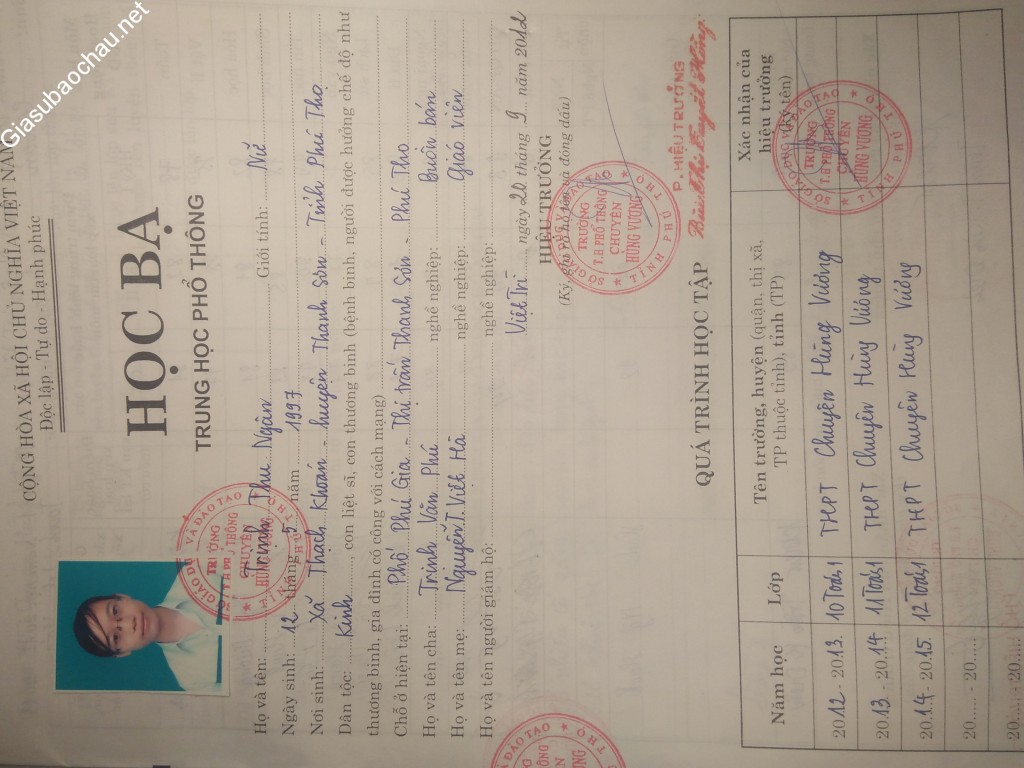 Giasubaochau.net
CỘNG HÒA XÃ HỘI CHỦ NGHĨA VIỆT NAM
Độc lập - Tự do - Hạnh phúc
HỌC BẠ
TRUNG HỌC PHỔ THÔNG
Họ và tên: Trịnh Thu Ngân Giới tính: Nữ
Ngày sinh: 12 tháng năm 1997
Nơi sinh: Xã Thạch Khoán - huyện Thanh Sơn - Tỉnh Phú Thọ
Dân tộc: Kinh, con liệt sĩ, con thương binh (bệnh binh, người được hưởng chế độ như
thương binh, gia đình có công với cách mạng)
Chỗ ở hiện tại: Phố Phú Gia - Thị trấn Thanh Sơn - Phú Thọ
Họ và tên cha: Trịnh Văn Phú nghề nghiệp: Buôn bán
Họ và tên mẹ: Nguyễn T Việt Hà nghề nghiệp: Giáo viên
Họ và tên người giám hộ: nghề nghiệp:
Việt Trì, ngày 20 tháng 9 năm 2012
HIỆU TRƯỞNG
(Ký, ghi rõ họ tên và đóng dấu)
SỞ GIÁO DỤC VÀ ĐÀO TẠO
TRƯỜNG
T.H PHỔ THÔNG
CHUYÊN
HÙNG VƯƠNG
TỈNH PHÚ THỌ
P. HIỆU TRƯỞNG
QUÁ TRÌNH HỌC TẬP
Năm học Lớp Tên trường, huyện (quận, thị xã, TP thuộc tỉnh), tỉnh (TP) Xác nhận của hiệu trưởng (Ký tên)
2012 - 2013 10 Toán 1 THPT Chuyên Hùng Vương
2013 - 2014 11 Toán 1 THPT Chuyên Hùng Vương
2014 - 2015 12 Toán 1 THPT Chuyên Hùng Vương
20..... - 20.....
20..... - 20.....